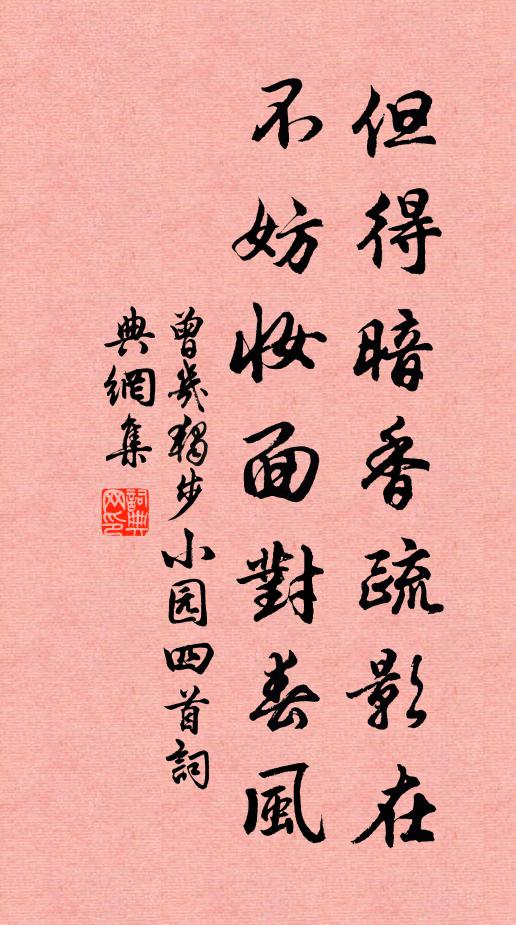 但得暗香疏影在
不妨妆面對春風
曾幾獨步小园四首詞
典網集
詞典
网印